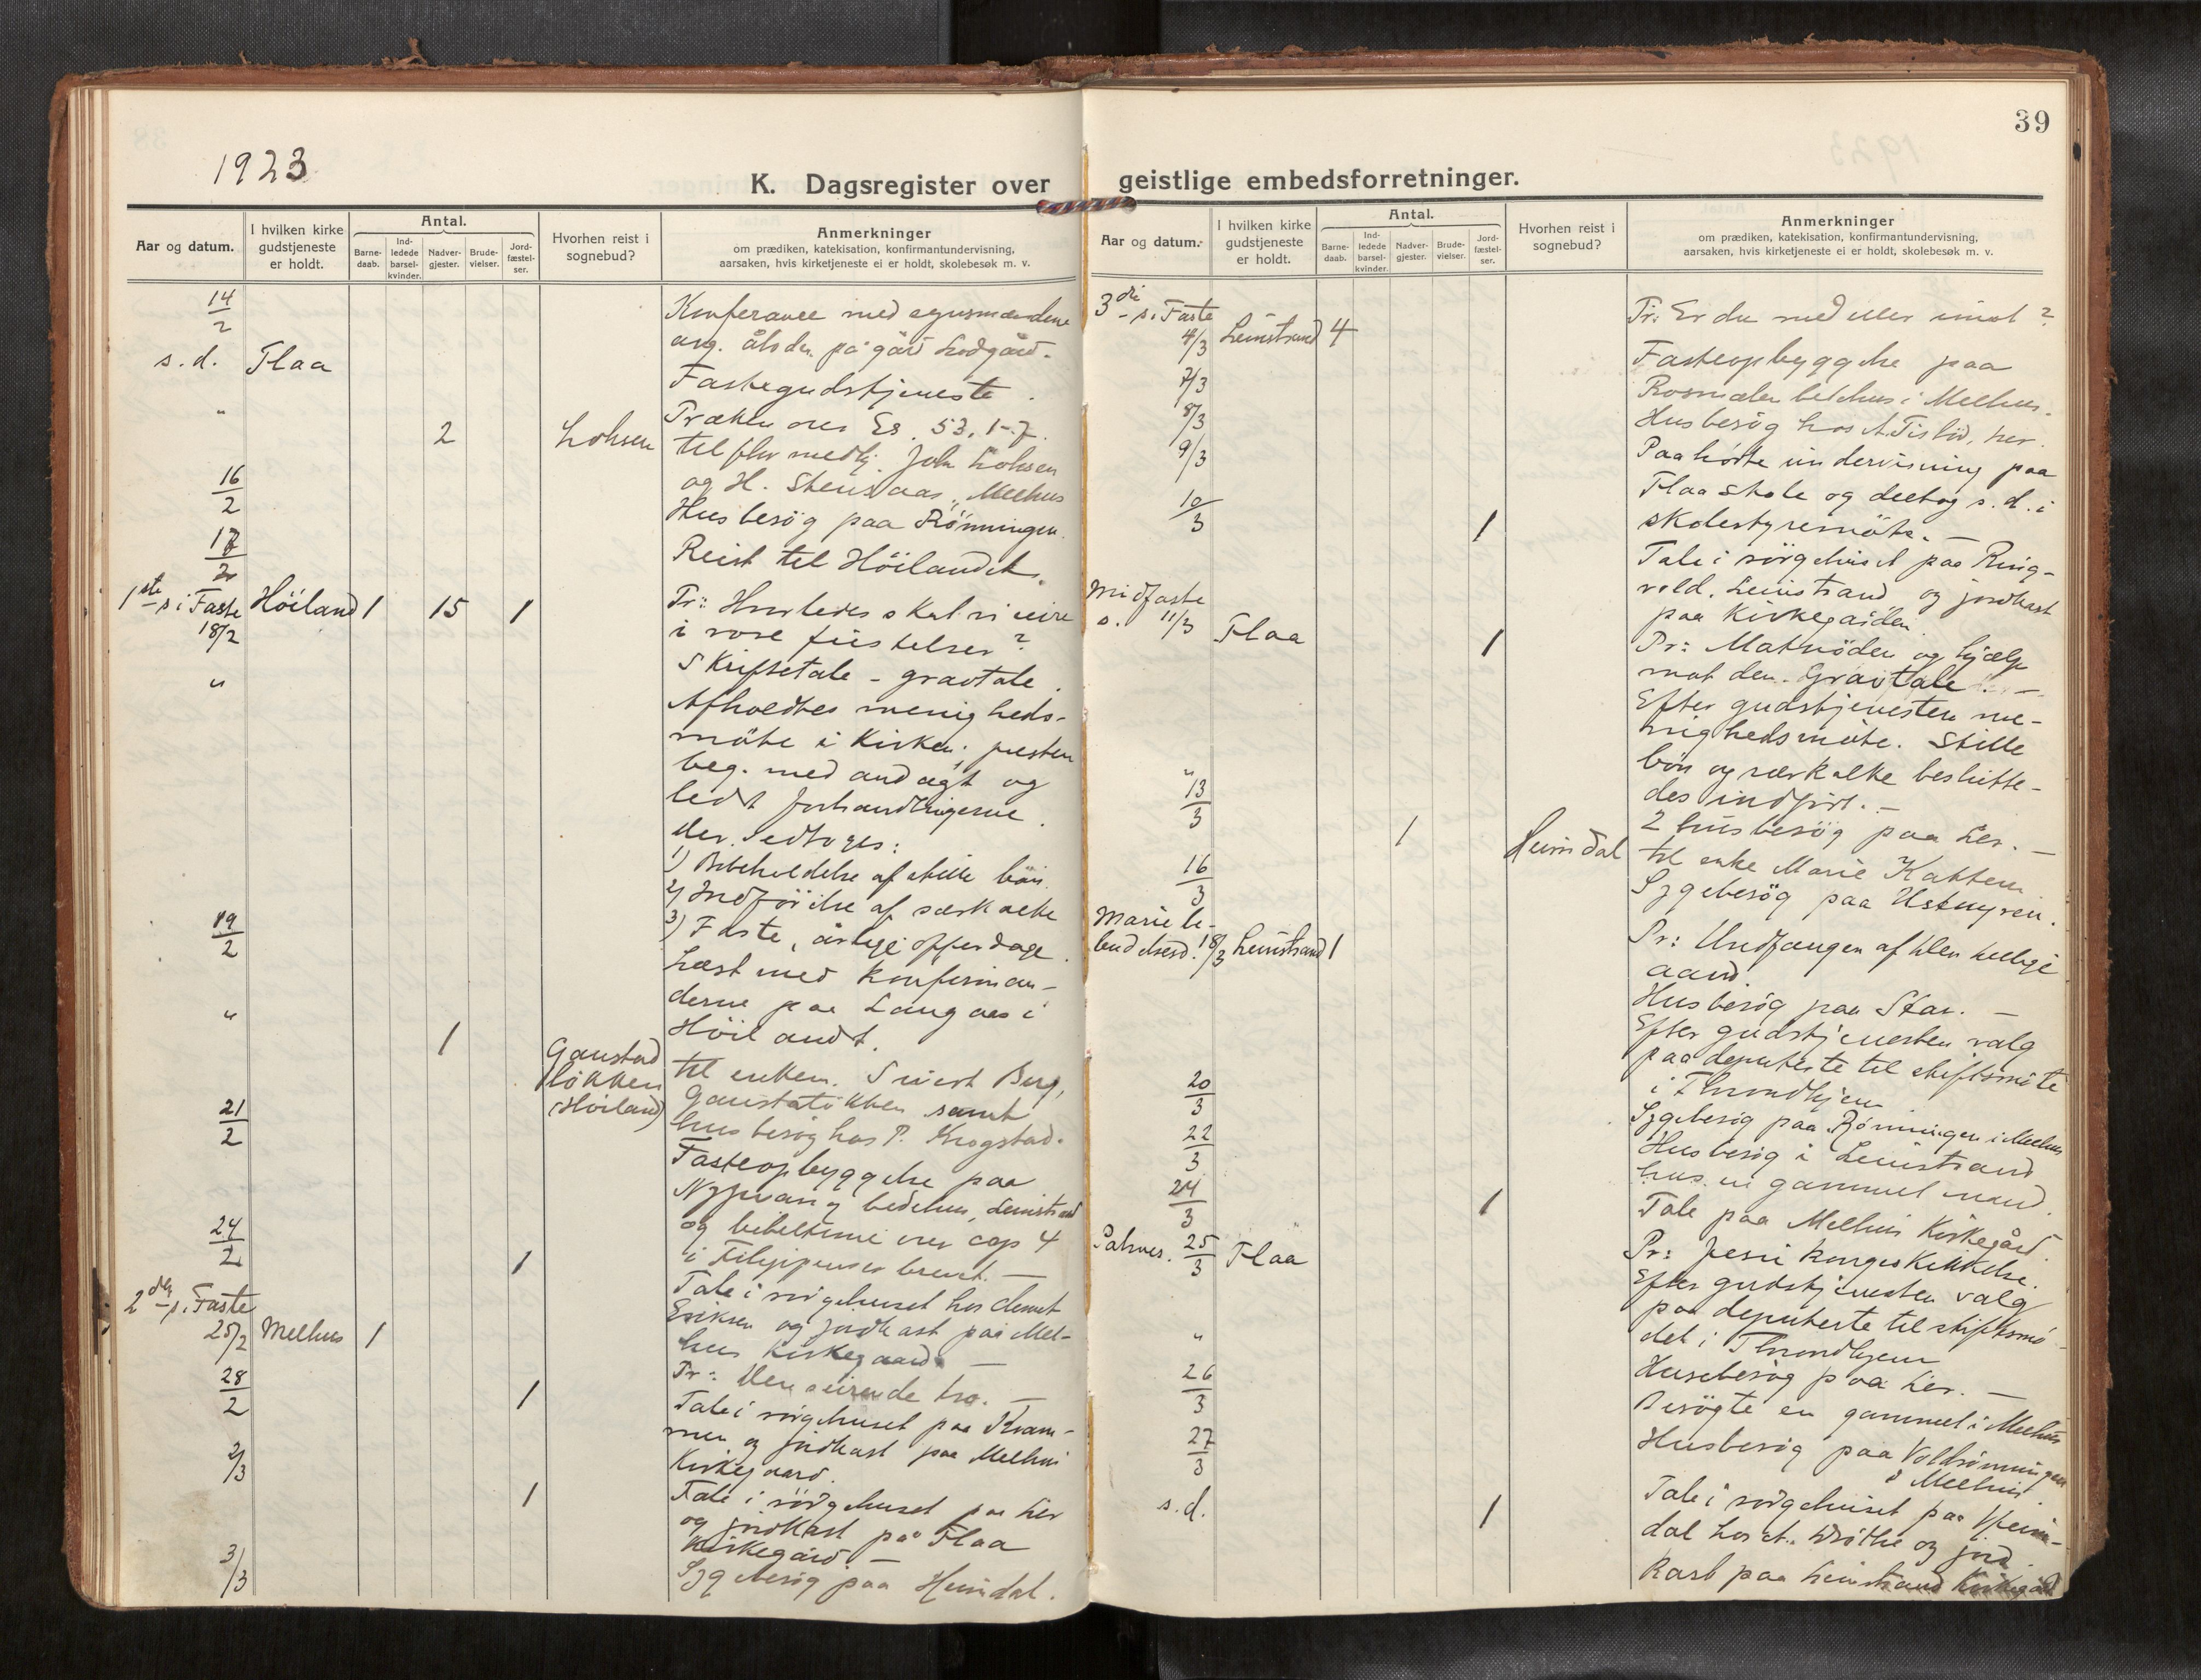 39
1923
K. Dagsregister over geistlige embedsforretninger.
Aar og datum.
I hvilken kirke gudstjeneste er holdt.
Antal.
Barne-daab.
Ind-ledede barsel-kvinder.
Nadver-gjester.
Brude-vielser.
Jord-fæstel-ser.
Hvorhen reist i sognebud?
Anmerkninger
om prædiken, katekisation, konfirmantundervisning,
aarsaken, hvis kirketjeneste ei er holdt, skolebesøk m. v.
14/2 Konferance med
ang. på gård
s. d. Flaa Fastegudstjeneste.
Præken over Es. 53, 1-7.
" 2 Lohsen til fhv medhj. John Lohsen
og H. Stensaas, Melhus
16/2 Husbesøg paa Rönningen.
17/2 Reist til Höilandet.
1ste s. i Faste 18/2 Höiland 1 15 1 Pr: Hvorledes skal vi seire
i vore fristelser?
Skriftetale - gravtale.
" Afholdtes menigheds-
möte i kirken; presten
beg. med andagt og
ledet forhandlingerne.
Der vedtoges:
1) Bibeholdelse af stille bön.
2) Indförelse af særkalke
3) Faste, årlige offerdage.
19/2 Læst med konfirman-
derne paa Langaas i
Höilandet.
" 1 Gaustad
lökken
(Höiland) til enken. Sivert Berg,
Gaustalökken samt
husbesög hos P. Krogstad.
21/2 Fasteopbyggelse paa
Nypvang bedehus, Leinstrand
og bibeltime over cap 4
i Filippenser brevet. —
24/2 1 Tale i sörgehuset hos
Eriksen og jordkast paa Mel-
hus Kirkegaard. —
2den s. i Faste 25/2 Melhus 1 Pr: Den seirende tro. —
28/2 1 Tale i sörgehuset paa Kram-
men og jordkast paa Melhus
Kirkegaard.
2/3 1 Tale i sörgehuset paa Ler
og jordkast på Flaa
Kirkegård —
3/3 Sygebesög paa Heimdal.
Aar og datum.
I hvilken kirke gudstjeneste er holdt.
Antal.
Barne-daab.
Ind-ledede barsel-kvinder.
Nadver-gjester.
Brude-vielser.
Jord-fæstel-ser.
Hvorhen reist i sognebud?
Anmerkninger
om prædiken, katekisation, konfirmantundervisning,
aarsaken, hvis kirketjeneste ei er holdt, skolebesøk m. v.
3die s. i Faste 4/3 Leinstrand 4 Pr: Er du med eller imot?
7/3 Fasteopbyggelse paa
Rosmælen bedehus i Melhus.
8/3 Husbesög hos
9/3 Paahörte undervisning paa
Flaa skole og deltog s. d. i
skolestyremöte. —
10/3 1 Tale i sörgehuset paa Ring-
vold, Leinstrand og jordkast
paa Kirkegården
Midfaste s. 11/3 Flaa 1 Pr: Matnöden og hjælp
mot den. Gravtale. —
Efter gudstjenesten me-
nighedsmöte. Stille
bön og særkalke beslutte-
des indfört. —
" 2 husbesög paa Ler. —
13/3 1 Heimdal til enke Marie Kattem
16/3 Sygebesög paa Ustmyren.
Marie be-
budelsesd. 18/3 Leinstrand 1 Pr: Undfangen af den hellige
aand.
Husbesög paa Skar. —
Efter gudstjenesten valg
paa deputerte til stiftsmöte
i Throndhjem
20/3 Sygebesög paa Rönningen i Melhus
22/3 Husbesög i Leinstrand
hos en gammel mand.
24/3 1 Tale paa Melhus Kirkegård.
Palmes. 25/3 Flaa Pr: Jesu kongeskikkelse.
Efter gudstjenesten valg
paa deputerte til stiftsmö-
det i Throndhjem
" Husebesög paa Ler. —
26/3 Besögte en gammel i Melhus
27/3 Husbesög paa Voldrönningen
i Melhus
s. d. 1 Tale i sörgehuset paa Heim-
dal hos og jord-
kast paa Leinstrand Kirkegård